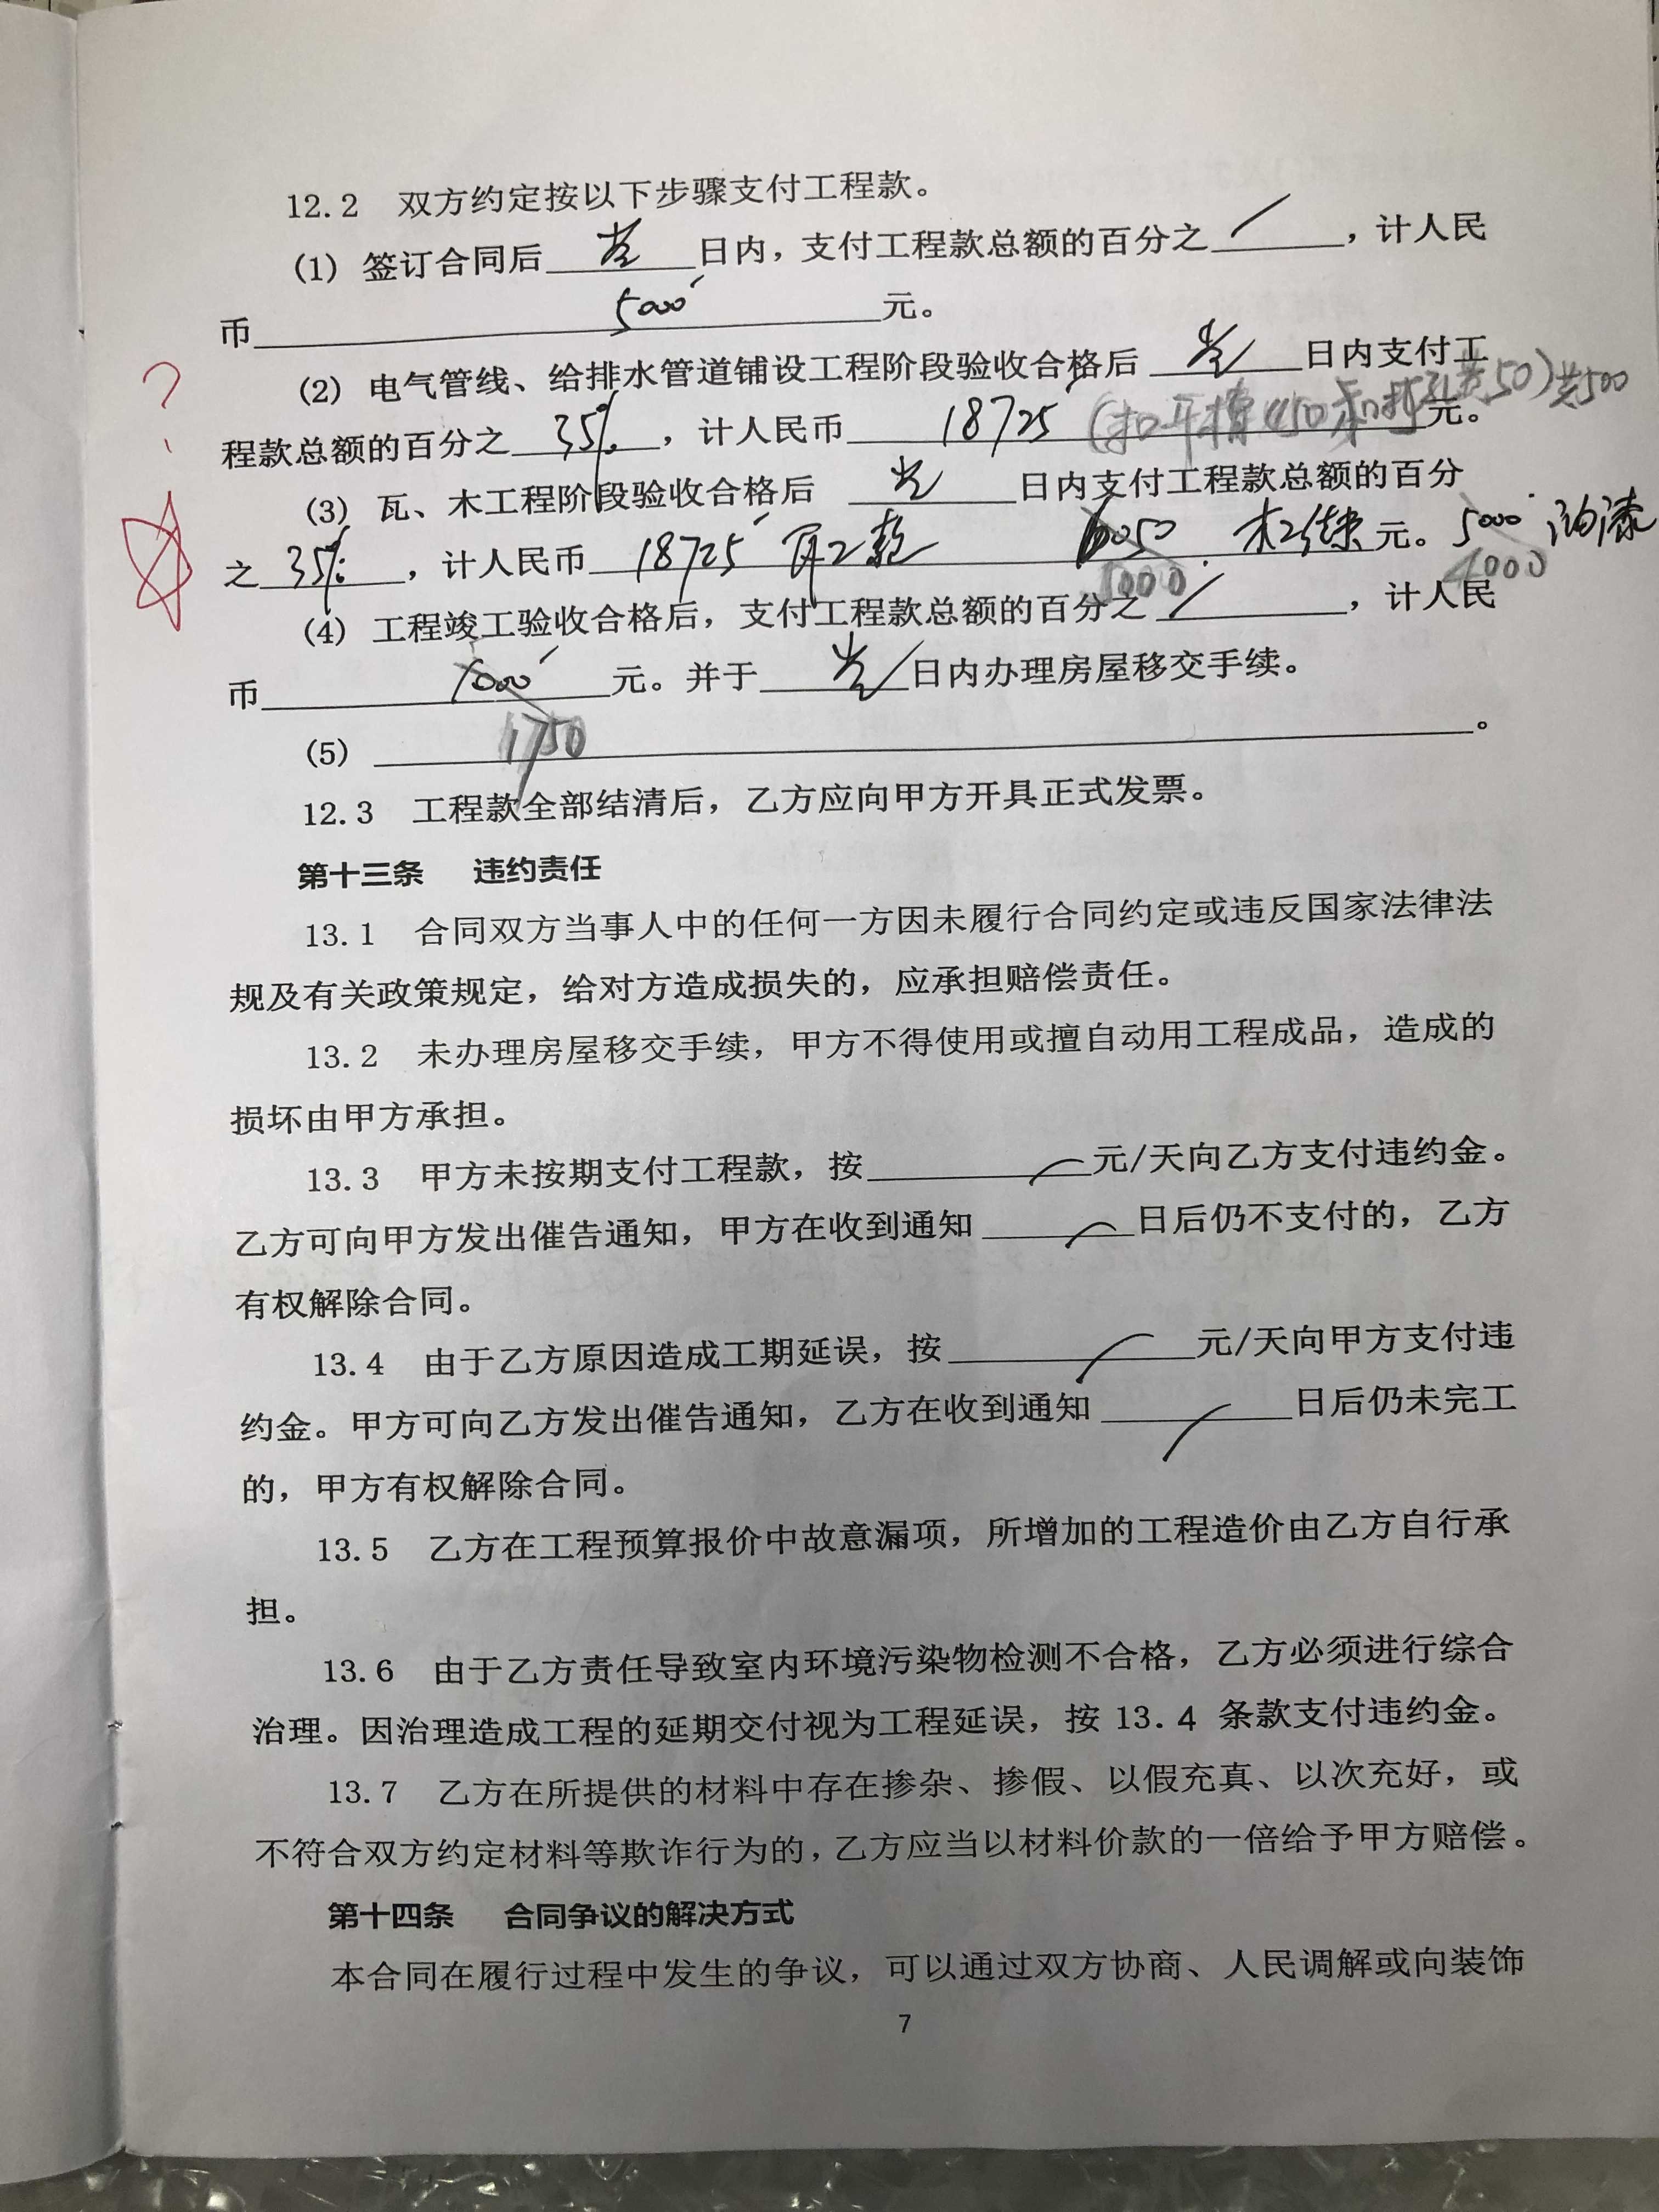 12.2 双方约定按以下步骤支付工程款。
(1) 签订合同后 当 日内，支付工程款总额的百分之 / ，计人民
币 5000 元。
(2) 电气管线、给排水管道铺设工程阶段验收合格后 当 日内支付工
程款总额的百分之 35% ，计人民币 18725 (扣开槽450和打孔共50)共500 元。
(3) 瓦、木工程阶段验收合格后 当 日内支付工程款总额的百分
之 35% ，计人民币 18725 瓦工款 6050 木工结束 元。 5000 油漆
5000 4000
(4) 工程竣工验收合格后，支付工程款总额的百分之 / ，计人民
币 1000 元。并于 当 日内办理房屋移交手续。
1750
(5) 。
12.3 工程款全部结清后，乙方应向甲方开具正式发票。
第十三条 违约责任
13.1 合同双方当事人中的任何一方因未履行合同约定或违反国家法律法
规及有关政策规定，给对方造成损失的，应承担赔偿责任。
13.2 未办理房屋移交手续，甲方不得使用或擅自动用工程成品，造成的
损坏由甲方承担。
13.3 甲方未按期支付工程款，按 / 元/天向乙方支付违约金。
乙方可向甲方发出催告通知，甲方在收到通知 / 日后仍不支付的，乙方
有权解除合同。
13.4 由于乙方原因造成工期延误，按 / 元/天向甲方支付违
约金。甲方可向乙方发出催告通知，乙方在收到通知 / 日后仍未完工
的，甲方有权解除合同。
13.5 乙方在工程预算报价中故意漏项，所增加的工程造价由乙方自行承
担。
13.6 由于乙方责任导致室内环境污染物检测不合格，乙方必须进行综合
治理。因治理造成工程的延期交付视为工程延误，按 13.4 条款支付违约金。
13.7 乙方在所提供的材料中存在掺杂、掺假、以假充真、以次充好，或
不符合双方约定材料等欺诈行为的，乙方应当以材料价款的一倍给予甲方赔偿。
第十四条 合同争议的解决方式
本合同在履行过程中发生的争议，可以通过双方协商、人民调解或向装饰
7
?